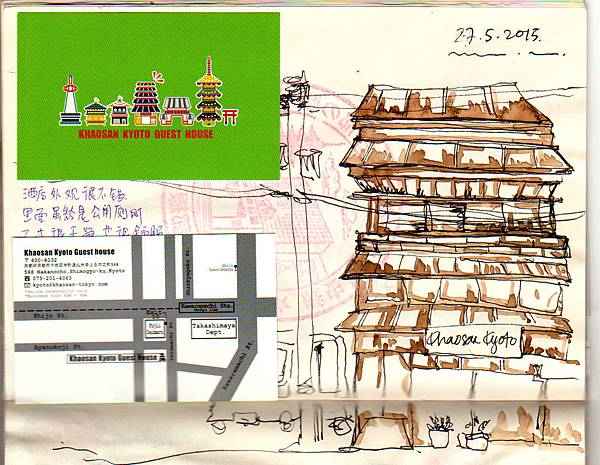 27.5.2015.
KHAOSAN KYOTO GUEST HOUSE
酒店外观很不错
里面虽然是公用厕所
Khaosan Kyoto Guest house
〒600-8032
568 Nakanocho,Shimogyo-ku,Kyoto
075-201-4063
kyoto@khaosan-tokyo.com
*Online reservation only
*Business hour 8am - 9pm
Shinkyogoku St.
Kawaramachi Sta.
Shijo St.
Exit
Fujii
Daimaru
Takashimaya
Dept.
Ayanokoji St.
Teramachi St.
Kawaramachi St.
Khaosan Kyoto Guest House
Khaosan Kyoto